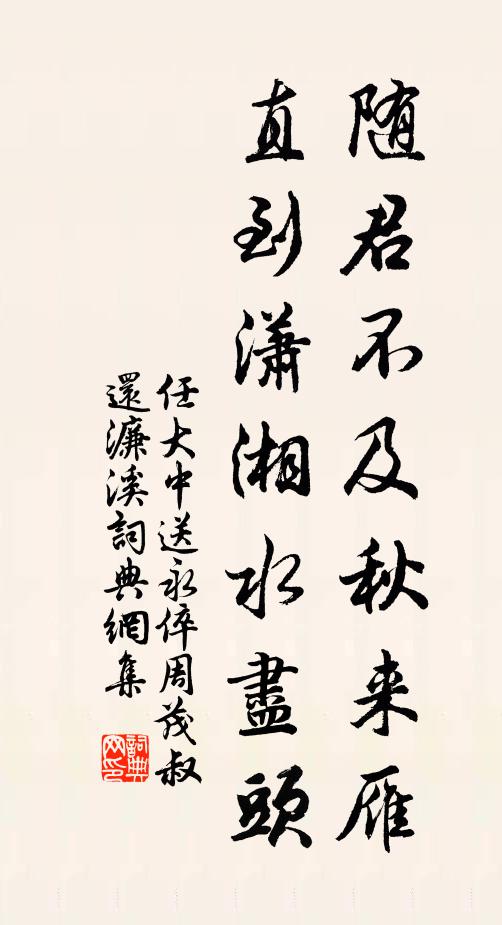 随君不及秋来雁
直到瀟湘水盡頭
任大中送永倅周茂叔
還濂溪詞典網集
詞典網印